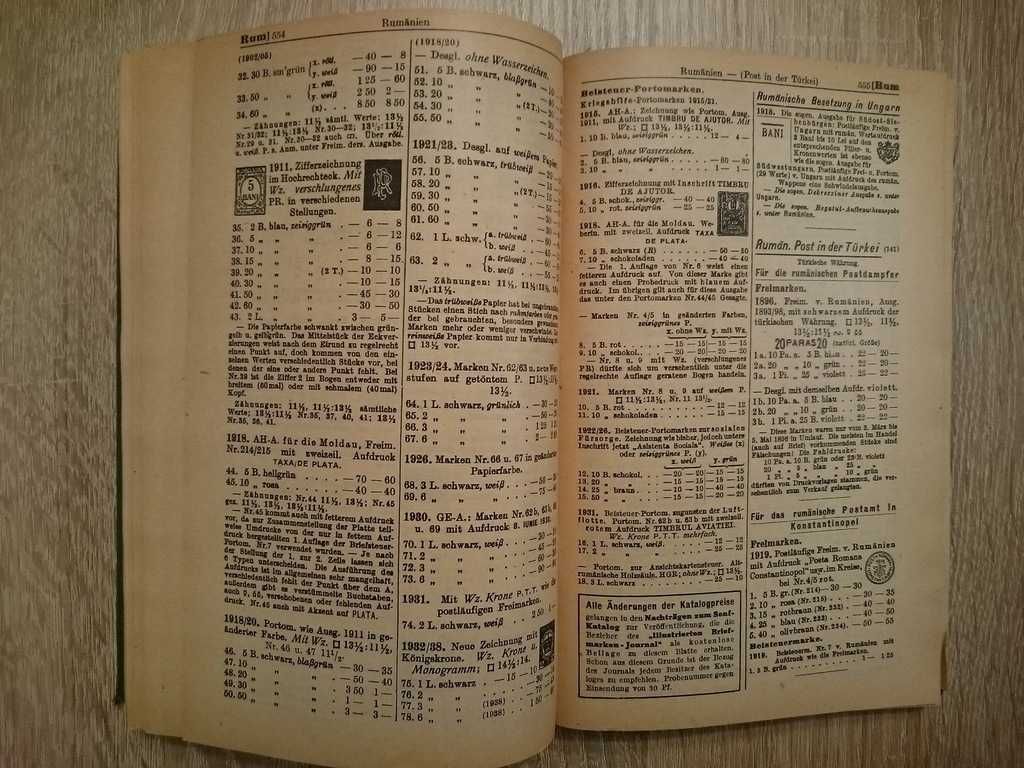 Rum] 554
Rumänien
(1902/05)
32. 30 B. sm'grün x. röll. — 40 — 8
y. weiß — 90 — 15
33. 50 „ „ x. röll. 1 25 — 60
y. weiß 2 50 2 —
34. 60 „ „ (x). . . 8 50 8 50
— Zähnungen: 11½ sämtl. Werte; 13½
1911. Zifferzeichnung
im Hochrechteck. Mit
Wz. verschlungenes
PR. in verschiedenen
Stellungen.
5
BANI
35. 2 B. blau, zeisiggrün . — 6 — 8
36. 5 „ „ . — 6 — 12
37. 10 „ „ . — 6 — 6
38. 15 „ „ . — 8 — 15
39. 20 „ „ (2 T.) — 10 — 10
40. 30 „ „ . — 10 — 15
41. 50 „ „ . — 45 — 30
42. 60 „ „ . — 30 — 50
43. 2 L. „ „ . 3 — 5 —
— Die Papierfarbe schwankt zwischen grün-
gelb u. gelbgrün. Das Mittelstück der Eckver-
zierungen weist nach dem Eirund zu regelrecht
einen Punkt auf, doch kommen von den ein-
zelnen Werten verschiedentlich Stücke vor, bei
denen der eine oder andere Punkt fehlt. Bei
Nr. 39 ist die Ziffer 2 im Bogen entweder mit
breitem (60 mal) oder mit schmalem (40 mal)
Kopf.
Zähnungen: 11½, 11½:13½ sämtliche
Werte; 13½:11½ Nr. 35, 37, 40, 41; 13½
Nr. 35, 36, 41.
1918. AH-A. für die Moldau, Freim.
Nr. 214/215 mit zweizeil. Aufdruck
TAXA DE PLATA.
44. 5 B. hellgrün . . . . — 70 — 60
45. 10 „ rosa . . . . . — 40 — 40
— Zähnungen: Nr. 44 11½, 13½; Nr. 45
gez. 11½, 13½, 13½:11½.
— Nr. 45 kommt auch mit fettem Aufdruck
vor, da zur Zusammenstellung der Platte teil-
weise Umdrucke von der nur in fettem Auf-
druck hergestellten 1. Auflage der Briefsteuer-
Portom. Nr. 7 verwendet wurden. — Je nach
der Stellung der 1. zur 2. Zeile lassen sich
6 Typen unterscheiden. Die Ausführung des
Aufdrucks ist im allgemeinen sehr mangelhaft,
verschiedentlich fehlt der Punkt über dem A,
außerdem gibt es verstümmelte Buchstaben,
druck. Nr. 45 auch mit Aksent auf PLATA.
1918/20. Portom. wie Ausg. 1911 in ge-
änderter Farbe. Mit Wz. 13½:11½,
Nr. 46 u. 47 11½.
46. 5 B. schwarz, blaßgrün — 30 — 35
47. 10 „ „ „ — 50 — 40
48. 20 „ „ „ . — 30 — 30
49. 30 „ „ „ . 3 50 1 —
50. 50 „ „ „ . 3 — 3 —
(1918/20)
— Desgl. ohne Wasserzeichen.
51. 5 B. schwarz, blaßgrün
52. 10 „
53. 20 „
54. 30 „ (2 T.)
55. 50 „
1921/23. Desgl. auf weißem Papier
56. 5 B. schwarz, trübweiß
57. 10 „
58. 20 „
59. 30 „ (2 T.)
60. 50 „
61. 60 „
62. 1 L. schw. a. trübweiß
b. weiß
63. 2 „ „ a. trübweiß
b. weiß
Zähnungen: 11½, 11½:13½,
13½:11½.
— Das trübweiße Papier hat bei
Stücken einen Stich nach rahmfarben oder
der bei gebrauchten, besonders gewaschenen
Marken mehr oder weniger verschwindet.
reinweiße Papier kommt nur in Verbindung
13½ vor.
1923/24. Marken Nr. 62/63 u. neue
stufen auf getöntem P.
13½.
64. 1 L. schwarz, grünlich
65. 2 „
66. 3 „
67. 6 „
1926. Marken Nr. 66 u. 67 in geänderter
Papierfarbe.
68. 3 L. schwarz, weiß
69. 6 „
1930. GE-A.: Marken Nr. 62 b, 63 b, 68
u. 69 mit Aufdruck 8. IUNIE 1930.
70. 1 L. schwarz, weiß
71. 2 „
72. 3 „
73. 6 „
1931. Mit Wz. Krone P. T. T. wie die
postläufigen Freimarken.
74. 2 L. schwarz, weiß . . . 2 50 1 —
1932/38. Neue Zeichnung mit
Königskrone. Wz. Krone u.
Monogramm; 14½:14.
75. 1 L. schwarz . — 15 — 10
76. 2 „
77. 3 „ (1938)
78. 6 „ (1938)
Rumänien — (Post in der Türkei)
555 [Rum
Beisteuer-Portomarken.
Kriegshilfe-Portomarken 1915/21.
1915. AH-A.: Zeichnung wie Portom. Ausg.
1911, mit Aufdruck TIMBRU DE AJUTOR. Mit
Wz.; 13½, 13½:11½.
1. 10 B. blau, zeisiggrün . . . . — 12 — 4
— Desgl., ohne Wasserzeichen.
2. 5 B. blau, zeisiggrün . . . . — 60 — 60
3. 10 „ „ „ . . . . — 1 — 1
1916. Zifferzeichnung mit Inschrift TIMBRU
DE AJUTOR.
4. 5 B. schok., zeisiggr. — 40 — 40
5. 10 „ rot, zeisiggrün — 25 — 25
1918. AH-A. für die Moldau. We-
bertm. mit zweizeil. Aufdruck TAXA
DE PLATA.
6. 5 B. schwarz (R) . . . . — 50 — 50
7. 10 „ schokoladen . . . . — 40 — 40
— Die 1. Auflage von Nr. 6 weist einen
fetteren Aufdruck auf. Von dieser Marke gibt
es auch einen Probedruck mit blauem Auf-
druck. Im übrigen gilt auch für diese Ausgabe
das unter den Portomarken Nr. 44/45 Gesagte.
— Marken Nr. 4/5 in geänderten Farben,
zeisiggrünes P.
x. ohne Wz. y. mit Wz.
8. 5 B. rot . . . . — 15 — 15 — 15 — 15
9. 10 „ schokol. . . — 20 — 20 — 20 — 20
— Nr. 8 u. 9 mit Wz. (verschlungenes
PR) dürfte sich um versehentlich unter die
regelrechte Auflage geratene Bogen handeln.
1921. Marken Nr. 8 u. 9 auf weißem P.
11½:13½, Nr. 11 13½.
10. 5 B. rot . . . . . . . — 12 — 12
11. 10 „ schokoladen . . . . — 15 — 15
1922/26. Beisteuer-Portomarken zur sozialen
Fürsorge. Zeichnung wie bisher, jedoch untere
Inschrift jetzt „Asistenta Sociala". Weißes (x)
oder zeisiggrünes P. (y).
x. weiß y. grün
12. 10 B. schokol. . . — 20 — 20 — 15 — 15
13. 20 „ . . — 15 — 15 — 15 — 15
14. 25 „ braun . . — 10 — 10 — 40 — 40
15. 50 „ „ . . — 10 — 10 — 15 — 15
1931. Beisteuer-Portom. zugunsten der Luft-
flotte. Portom. Nr. 62 b u. 63 b mit zweizeil.
rotem Aufdruck TIMBRUL AVIATIEI.
Wz. Krone P. T. T. mehrfach.
16. 1 L. schwarz, weiß . . . . — 12 — 12
17. 2 „ „ „ . . . . — 25 — 25
— Portom. zur Ansichtskartensteuer. Alt-
rumänische Holzsäule. HGR; ohne Wz.; 13½.
18. 3 L. schwarz . . . . . . — 25 — 10
Alle Änderungen der Katalogpreise
gelangen in den Nachträgen zum Senf-
Katalog zur Veröffentlichung, die die
Bezieher des „Illustrierten Brief-
marken-Journal" als kostenlose
Beilage zu diesem Blatte erhalten.
Schon aus diesem Grunde ist der Bezug
des Journals jedem Besitzer des Kata-
loges zu empfehlen. Probenummer gegen
Einsendung von 30 Pf.
Rumänische Besetzung in Ungarn
1918. Die sogen. Ausgabe für Südost-Sie-
benbürgen: Postläufige Freim. v.
Ungarn mit rumän. Wertaufdruck
BANI
2 Bani bis 10 Lei auf den
entsprechenden Filler- u.
Kronenwerten ist ebenso
wie die sogen. Ausgabe für
Südwestungarn, Postläufige Frei- u. Portom.
(29 Werte) v. Ungarn mit Aufdruck des rumän.
Wappens eine Schwindelausgabe.
— Die sogen. Debrecziner Ausgabe s. unter
Ungarn.
s. unter Rumänien.
Rumän. Post in der Türkei (141)
Türkische Währung.
Für die rumänischen Postdampfer
Freimarken.
1896. Freim. v. Rumänien, Ausg.
1893/98, mit schwarzem Aufdruck der
türkischen Währung. 13½, 11½,
13½:11½
20 PARAS 20 (natürl. Größe)
1 a. 10 Pa. a. 5 B. blau . . . 22 — 20 —
2 a. 20 „ „ 10 „ grün . . 22 — 20 —
3 a. 1 Pi. „ 25 „ violett . . 25 — 22 —
— Desgl. mit demselben Aufdr. violett.
1 b. 10 Pa. a. 5 B. blau . . 20 — 20 —
2 b. 20 „ „ 10 „ grün . . 20 — 20 —
3 b. 1 Pi. a. 25 B. violett . 22 — 22 —
— Diese Marken waren nur vom 2. März bis
5. Mai 1896 in Umlauf. Die meisten im Handel
(auch auf Brief) vorkommenden Stücke sind
Fälschungen! Die Fehldrucke:
10 Pa. a. 10 B. grün oder 25 B. violett
20 „ „ 5 „ blau „ 25 „ „
1 Pi. „ 5 „ „ „ 10 „ grün
dürften von Druckvorlagen stammen, die ver-
sehentlich zum Verkauf gelangten.
Für das rumänische Postamt in
Konstantinopel
Freimarken.
1919. Postläufige Freim. v. Rumänien
mit Aufdruck „Posta Romana
Constantinopol" usw. im Kreise;
bei Nr. 4/5 rot.
1. 5 B. gr. (Nr. 214) — 30 — 30
2. 10 „ rosa (Nr. 215) . . — 30 — 35
3. 15 „ rotbraun (Nr. 232) . — 40 — 50
4. 25 „ blau (Nr. 233) . . — 40 — 50
5. 40 „ olivbraun (Nr. 234) . — 50 — 55
Beisteuermarke.
1919. Beisteuerm. Nr. 7 v. Rumänien mit
Aufdruck wie die Freimarken.
1. 5 B. grün . . . . . . . — 1 — 1 25